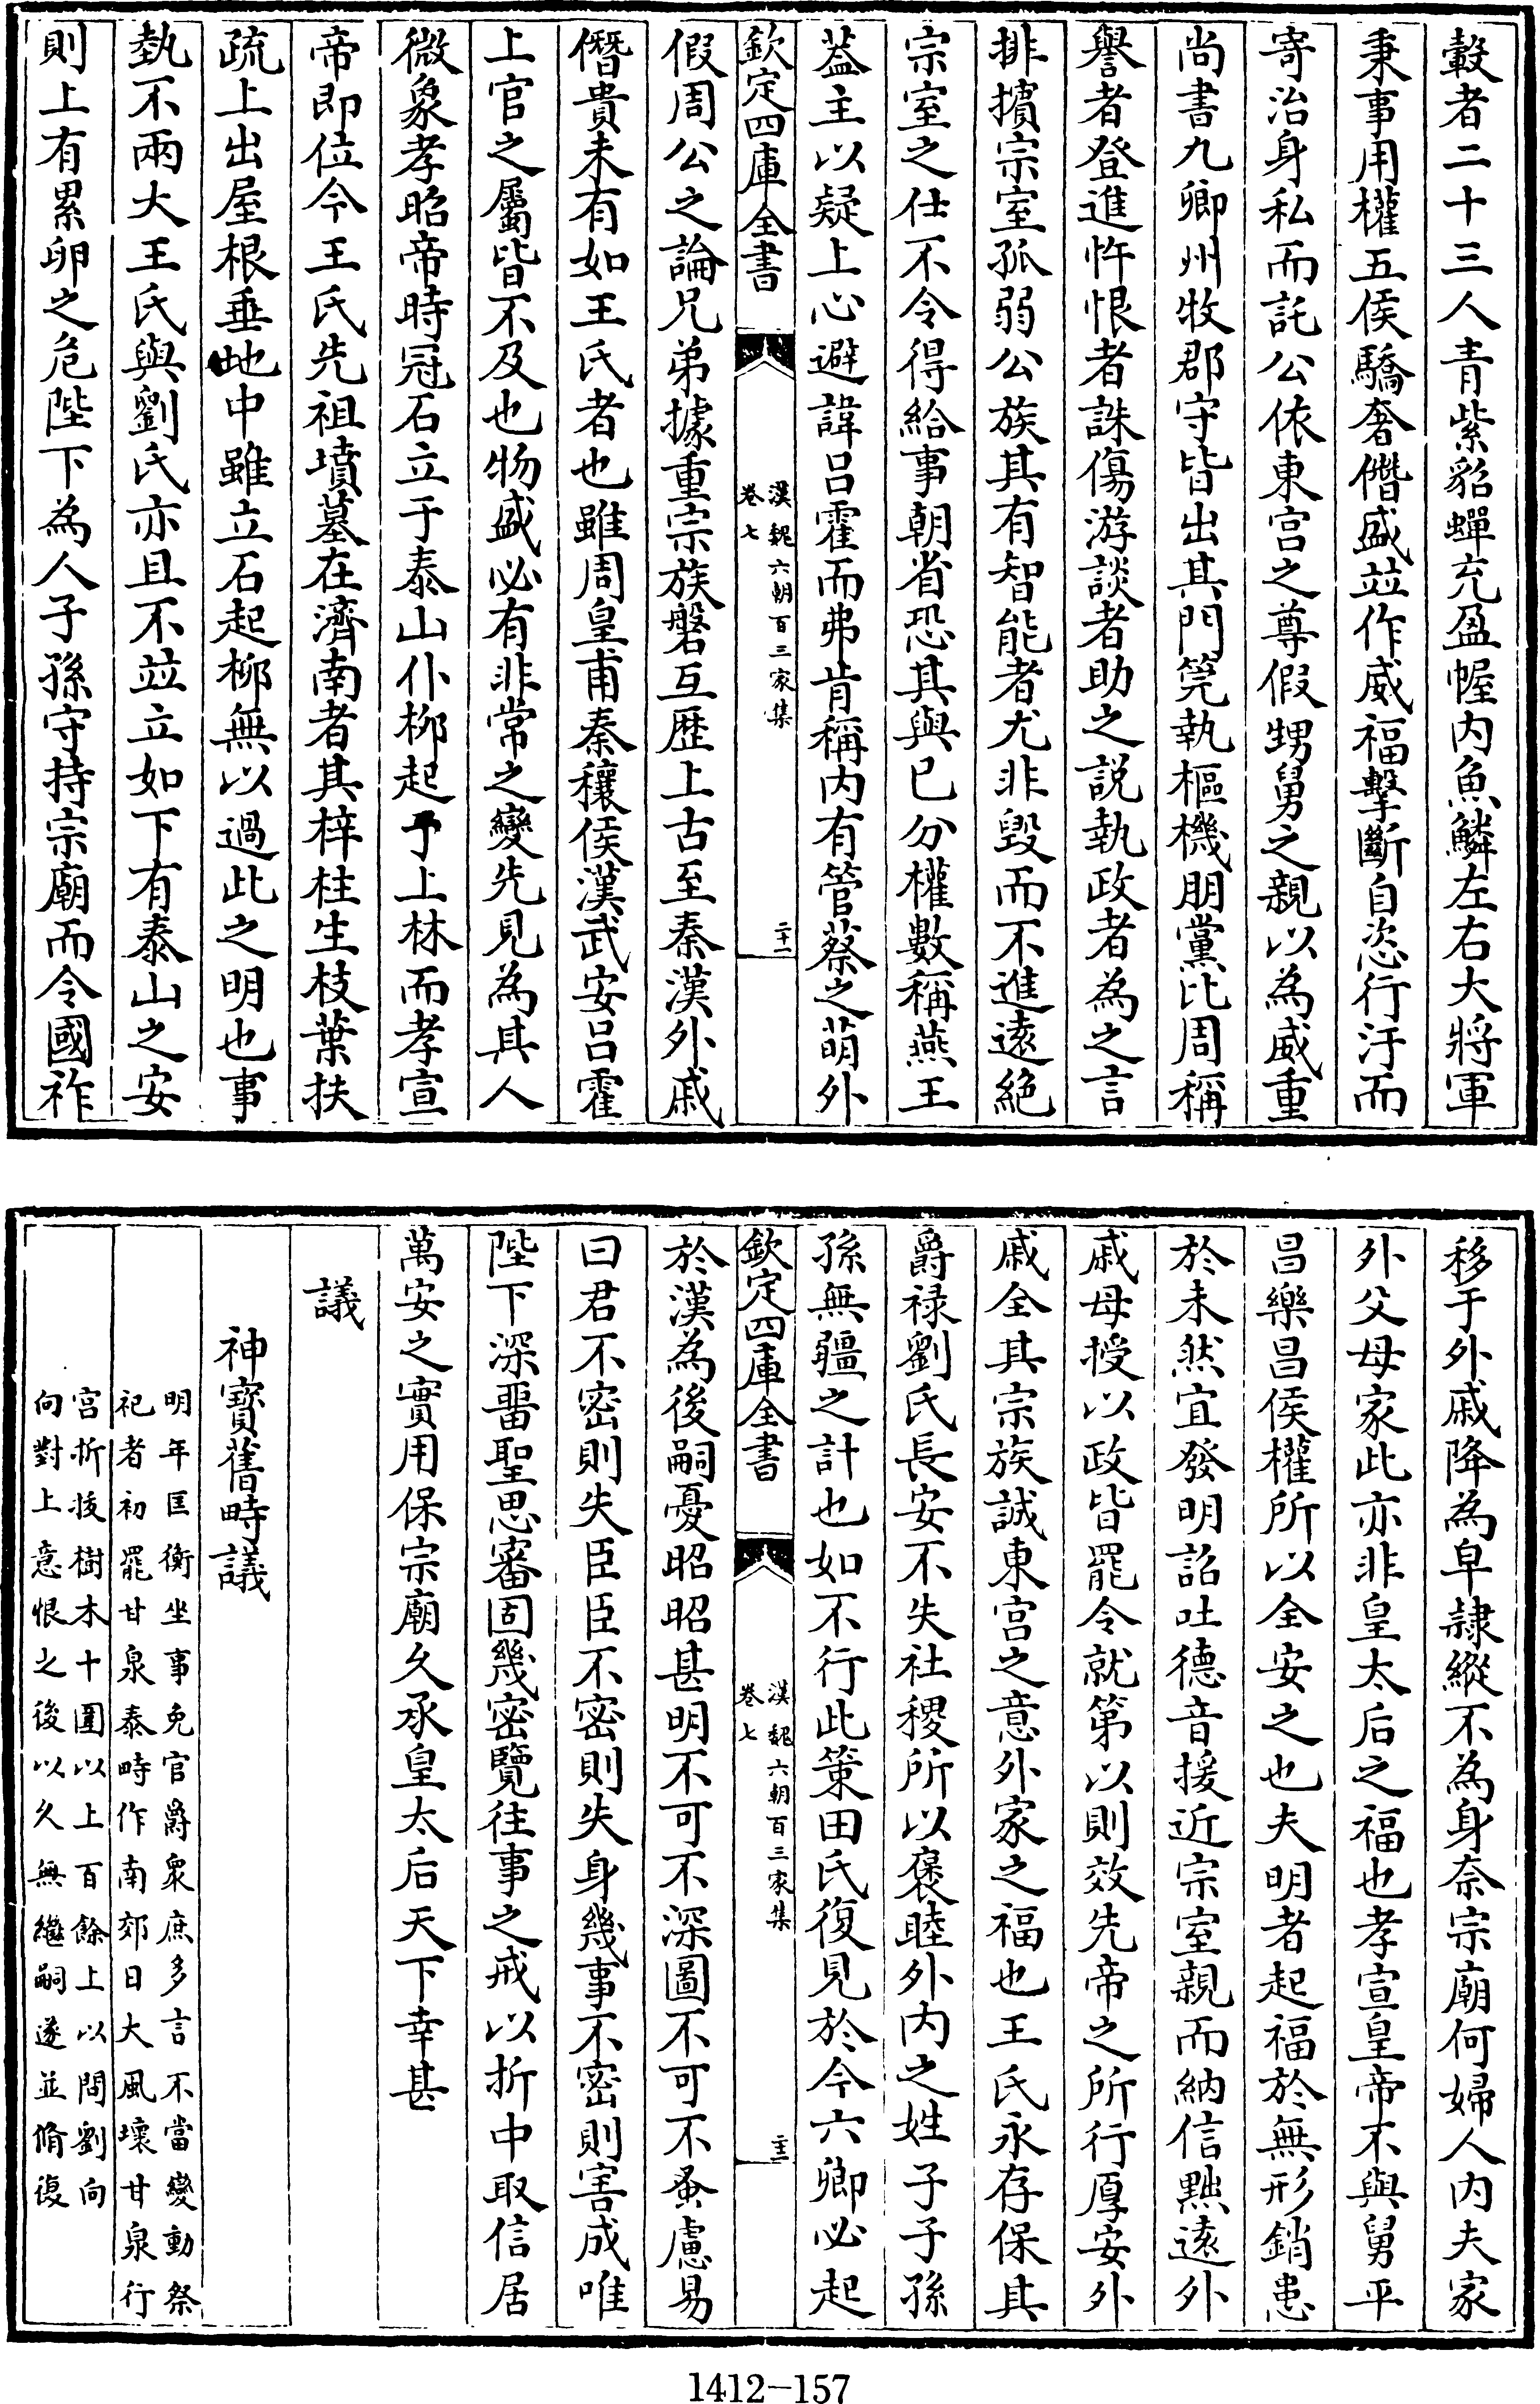 轂者二十三人青紫貂蟬充盈幄内魚鱗左右大將軍
秉事用權五侯驕奢僭盛並作威福擊斷自恣行汙而
寄治身私而託公依東宫之尊假甥舅之親以為威重
尚書九卿州牧郡守皆出其門筦執樞機朋黨比周稱
譽者登進忤恨者誅傷游談者助之説執政者為之言
排擯宗室孤弱公族其有智能者尤非毁而不進遠絶
宗室之仕不令得給事朝省恐其與已分權數稱燕王
葢主以疑上心避諱吕霍而弗肯稱内有管蔡之萌外
欽定四庫全書
漢魏六朝百三家集
卷七
二十一
假周公之論兄弟據重宗族磐互歴上古至秦漢外戚
僭貴未有如王氏者也雖周皇甫秦穰侯漢武安吕霍
上官之屬皆不及也物盛必有非常之變先見為其人
微象孝昭帝時冠石立于泰山仆栁起于上林而孝宣
帝即位今王氏先祖墳墓在濟南者其梓柱生枝葉扶
疏上出屋根垂地中雖立石起栁無以過此之明也事
埶不兩大王氏與劉氏亦且不並立如下有泰山之安
則上有累卵之危陛下為人子孫守持宗廟而令國祚
移于外戚降為皁隷縱不為身奈宗廟何婦人内夫家
外父母家此亦非皇太后之福也孝宣皇帝不與舅平
昌樂昌侯權所以全安之也夫明者起福於無形銷患
於未然宜發明詔吐德音援近宗室親而納信黜遠外
戚毋授以政皆罷令就第以則效先帝之所行厚安外
戚全其宗族誠東宫之意外家之福也王氏永存保其
爵禄劉氏長安不失社稷所以褒睦外内之姓子子孫
孫無疆之計也如不行此策田氏復見於今六卿必起
欽定四庫全書
漢魏六朝百三家集
卷七
二十二
於漢為後嗣憂昭昭甚明不可不深圖不可不蚤慮易
曰君不密則失臣臣不密則失身幾事不密則害成唯
陛下深畱聖思審固幾密覽往事之戒以折中取信居
萬安之實用保宗廟久承皇太后天下幸甚
議
神寳舊畤議
明年匡衡坐事免官爵衆庶多言不當變動祭
祀者初罷甘泉泰畤作南郊日大風壞甘泉行
宫折拔樹木十圍以上百餘上以問劉向
向對上意恨之後以久無繼嗣遂並脩復
1412-157